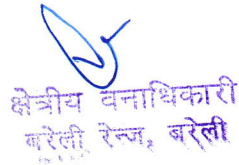 क्षेत्रीय वनाधिकारी
बरेली रेन्ज, बरेली